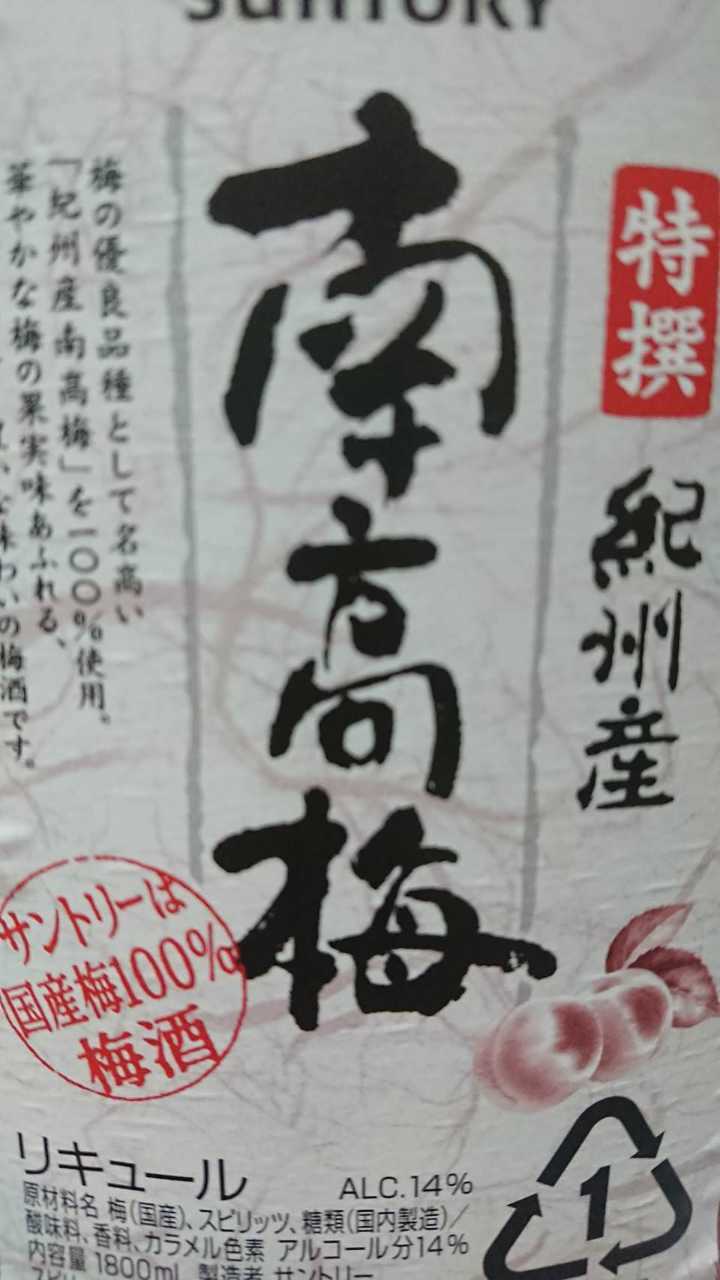 SUNTORY
特撰
紀州産
南高梅
梅の優良品種として名高い
「紀州産南高梅」を一〇〇%使用。
華やかな梅の果実味あふれる、
味わいの梅酒です。
サントリーは
国産梅100%
梅酒
リキュール
ALC.14%
原材料名 梅(国産)、スピリッツ、糖類(国内製造)/
酸味料、香料、カラメル色素 アルコール分14%
内容量 1800ml 製造者 サントリー
1